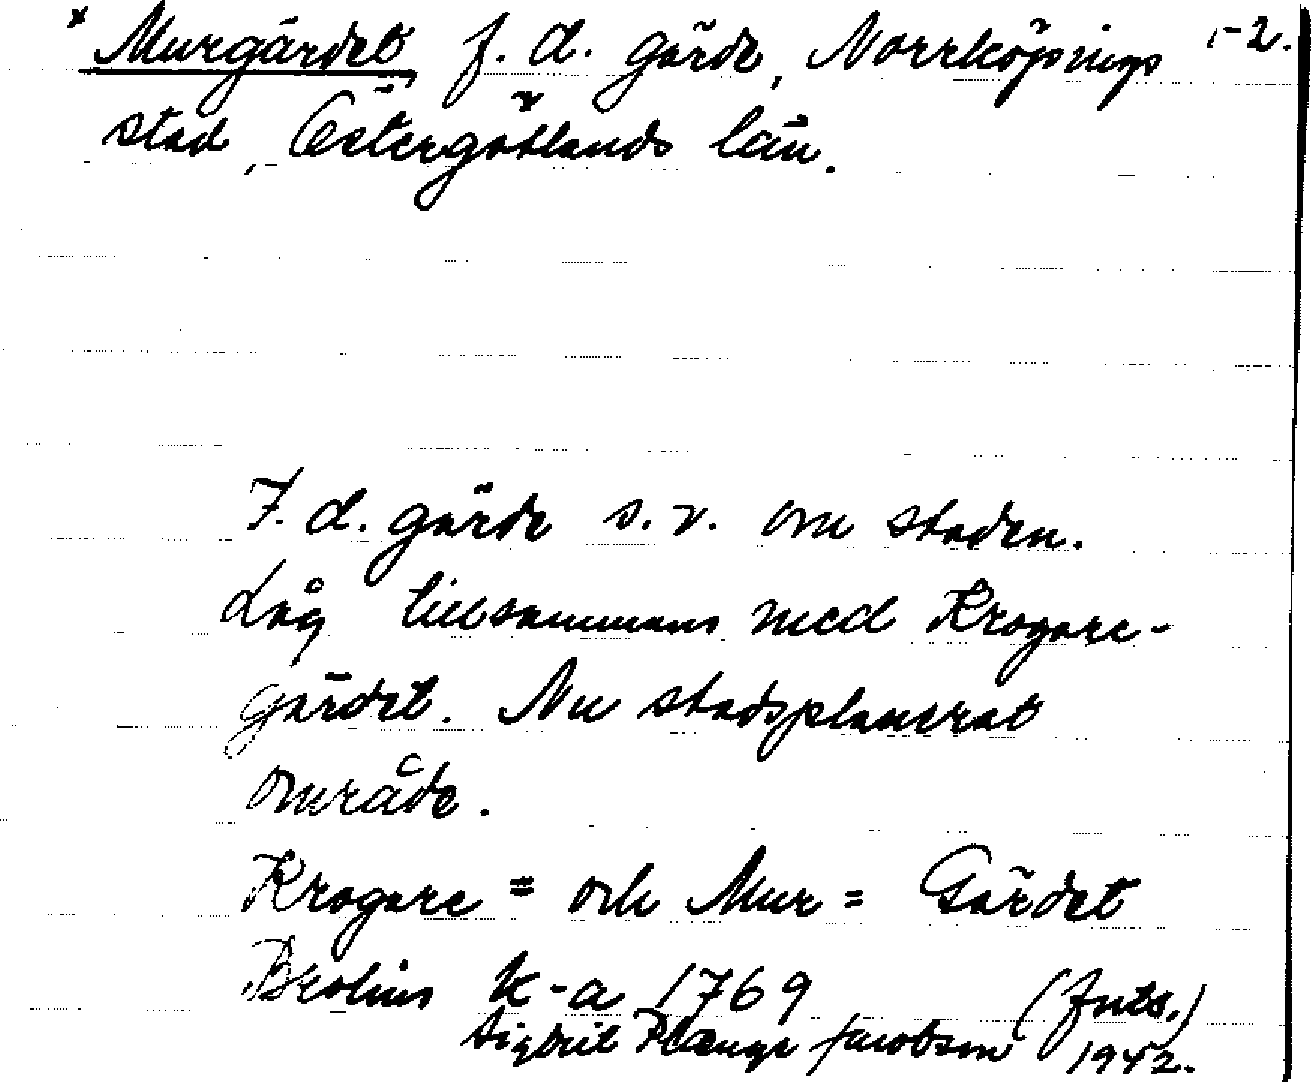 * Murgärdet, f. d. gärde, Norrköpings 1-2.
stad, Östergötlands län.
F. d. gärde s. v. om staden.
Låg tillsammans med Krogare-
gärdet. Nu stadsplanerat
område.
Krogare = och Mur = Gärdet
Brolins k-a 1769 (Juts.)
Sigbrit Plænge Jacobson 1942.